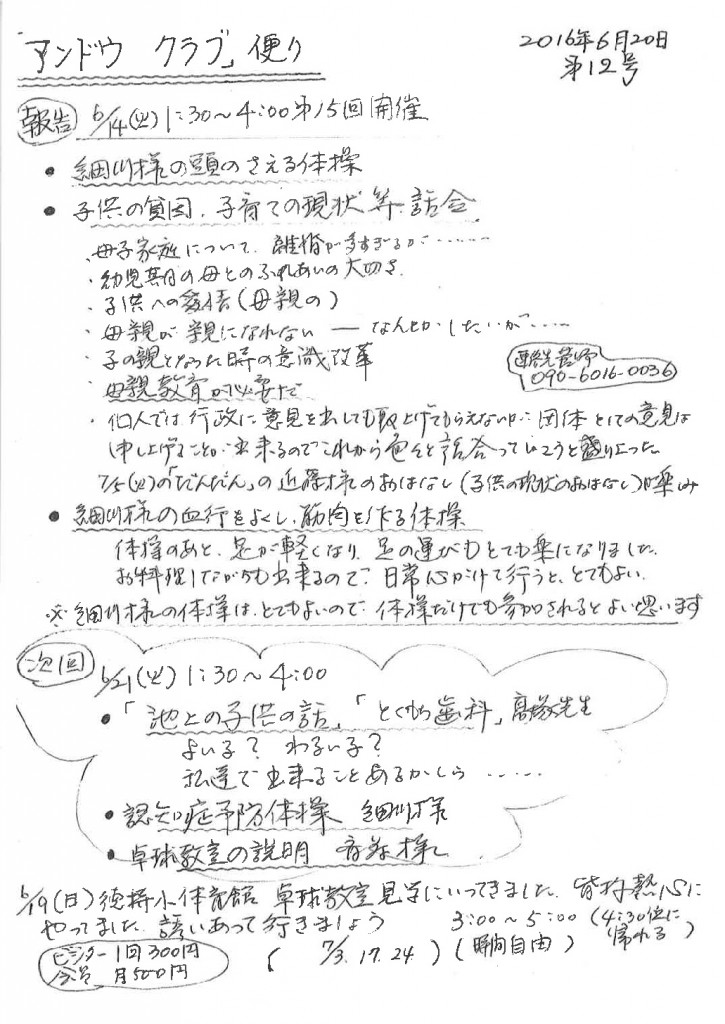 「アンドウ クラブ」便り
2016年6月20日
第12号
報告 6/14(火) 1:30〜4:00 第15回開催
● 細川様の頭のさえる体操
● 子供の貧困、子育ての現状等 話合
・母子家庭について、離婚が多すぎるが……
・幼児期の母とのふれあいの大切さ
・子供への愛情(母親の)
・母親が親になれない ― なんとかしたいが……
・子の親となった時の意識改革
・母親教育が必要だ
090-6016-0036
・個人では行政に意見を出しても取上げてもらえないが、団体としての意見は
申し上げることが出来るのでこれから色々と話合っていこうと盛り上った
7/5(火)の「だんだん」の近藤様のおはなし(子供の現状のおはなし)が楽しみ
● 細川様の血行をよくし、筋肉を作る体操
体操のあと、足が軽くなり、足の運びもとても楽になりました。
お料理しながらも出来るので、日常心がけて行うと、とてもよい。
※ 細川様の体操は、とてもよいので 体操だけでも参加されるとよい思います
次回 6/21(火) 1:30〜4:00
● 「池上の子供の話」「とくもち歯科」高塚先生
よい子? わるい子?
私達で出来ることあるかしら ……
● 認知症予防体操 細川様
● 卓球教室の説明
6/19(日) 徳持小体育館 卓球教室見学にいってきました。皆様熱心に
やってました。誘いあって行きましょう 3:00〜5:00 (4:30位に帰れる)
ビジター 1回300円
会員 月500円
( 7/3. 17. 24 ) (時間自由)